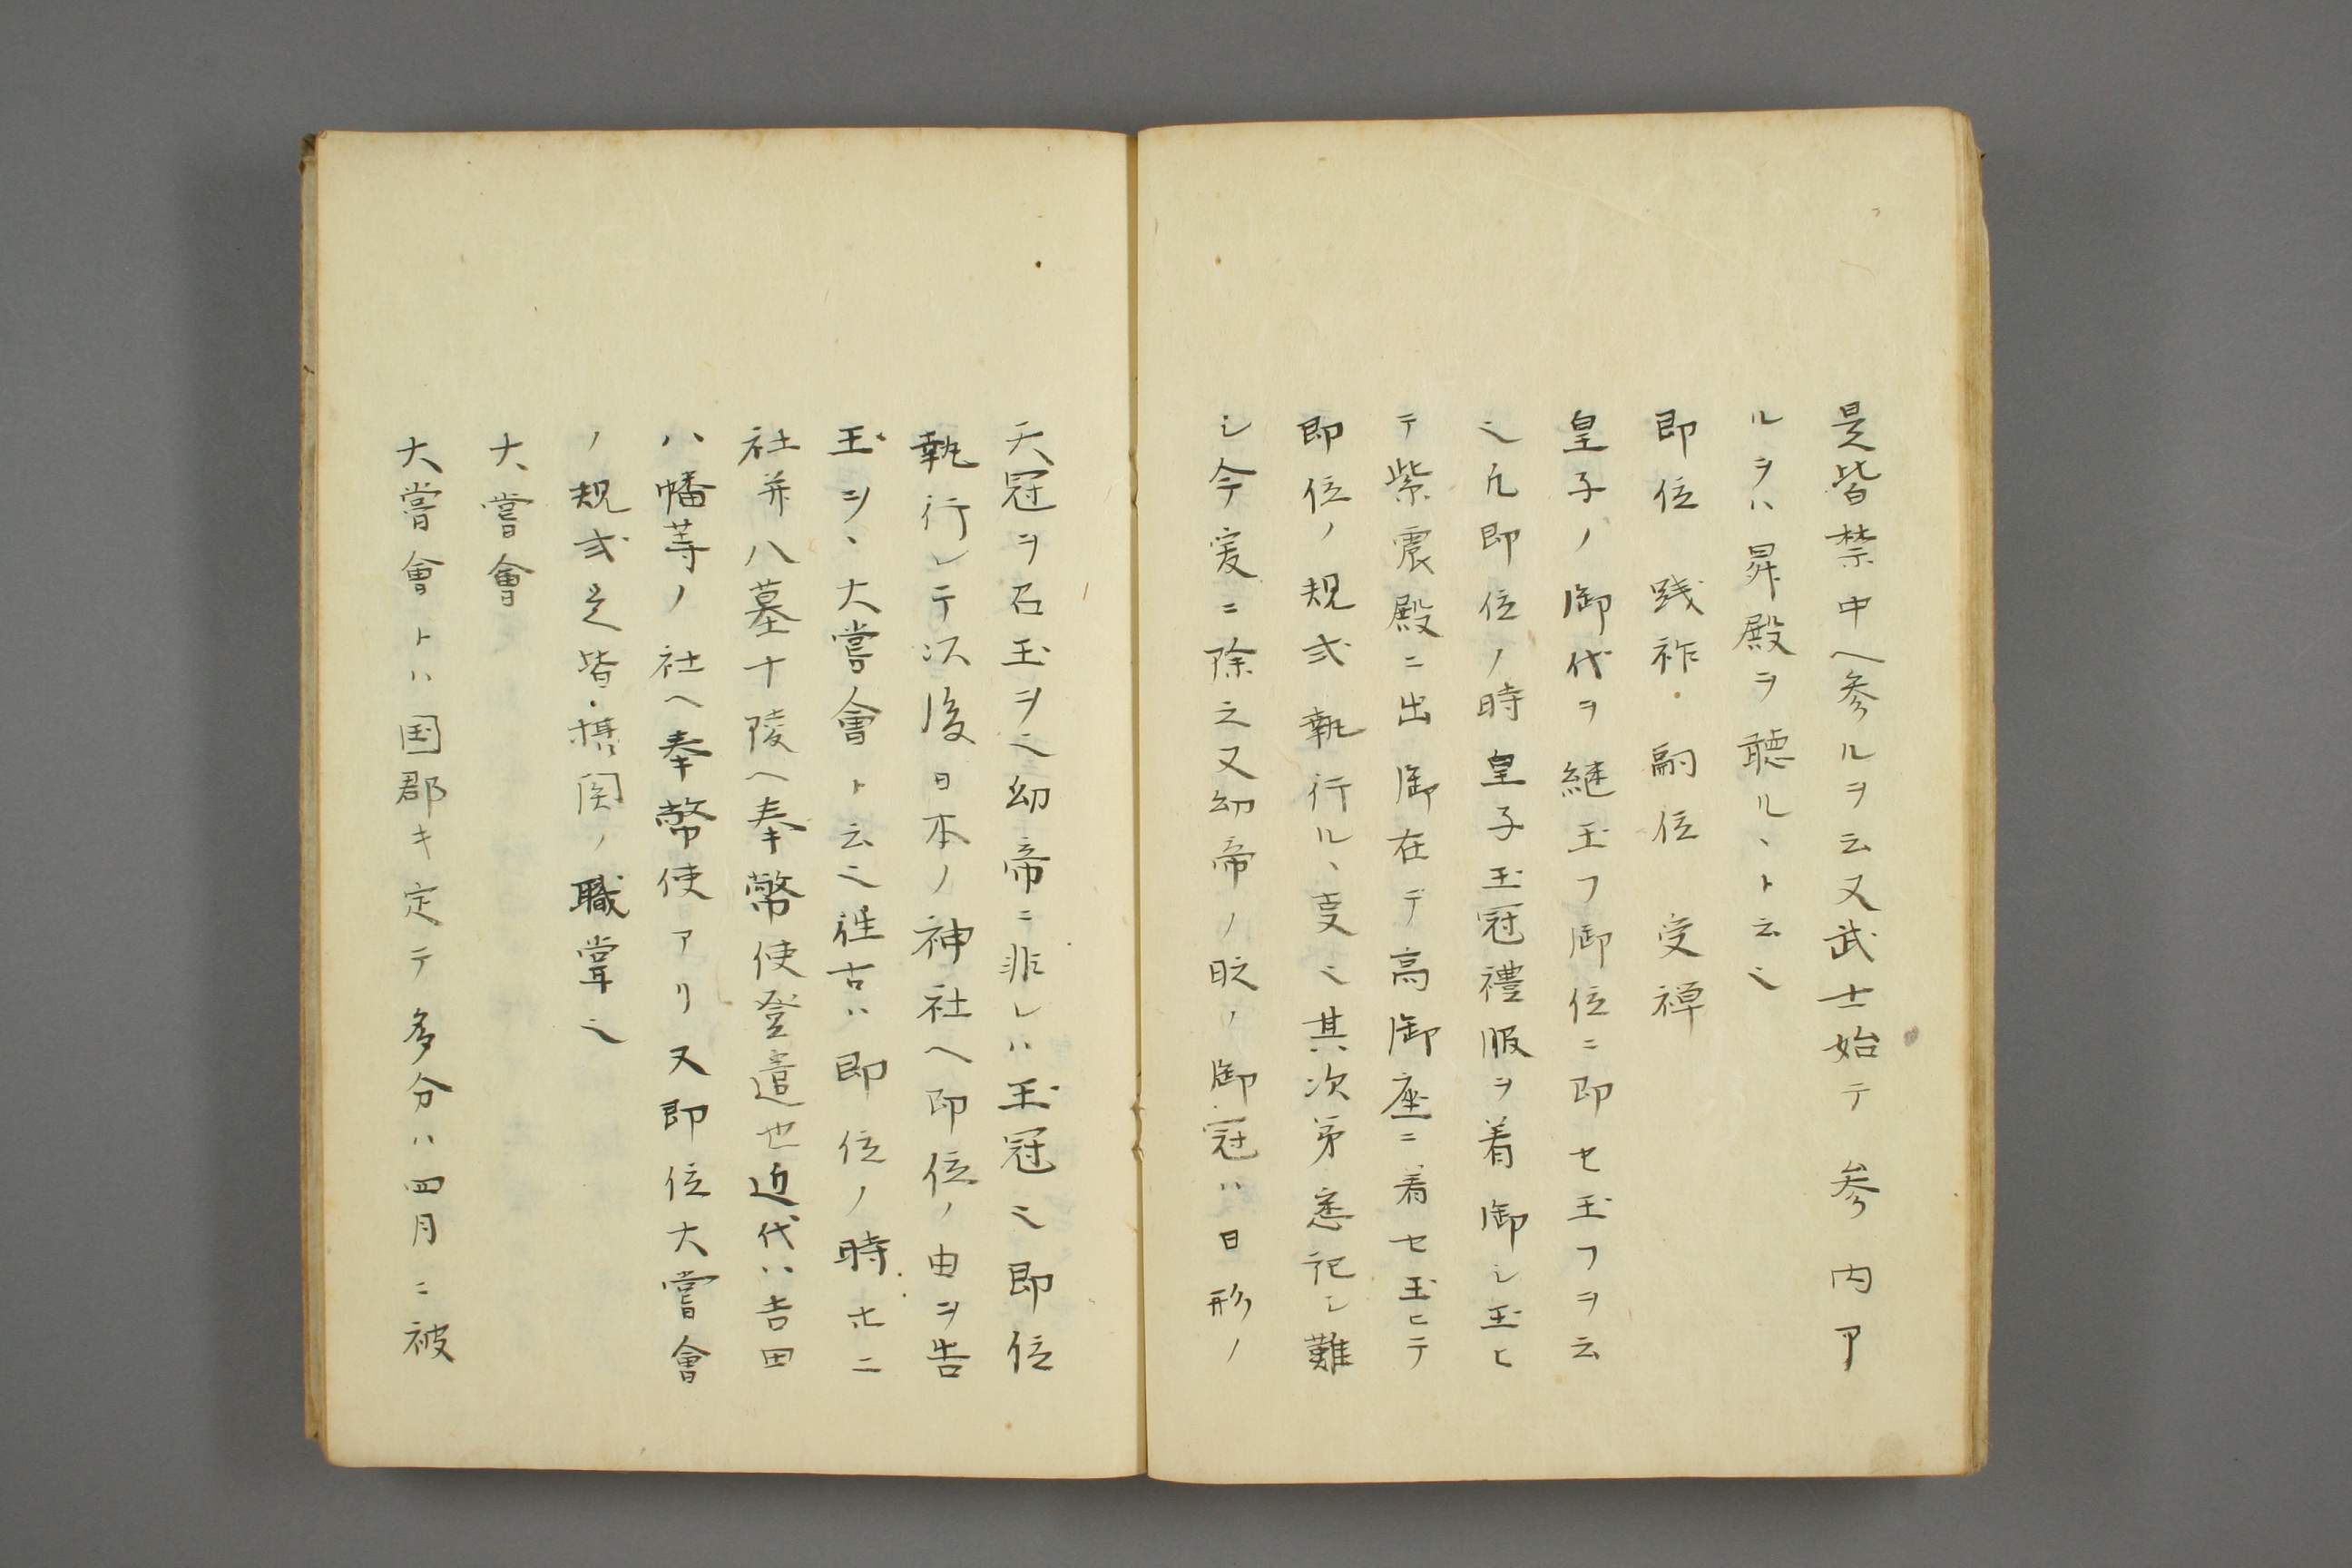 是皆禁中ヘ参ルヲ云又武士始テ参内ア
ルヲハ昇殿ヲ聴ルヽト云也
即位 践祚 嗣位 受禅
皇子ノ御代ヲ継玉フ御位ニ即セ玉フヲ云
也凢即位ノ時皇子玉冠禮服ヲ着御シ玉ヒ
テ紫震殿ニ出御在テ高御座ニ着セ玉ヒテ
即位ノ規式執行ルヽ叓也其次第悉記シ難
シ今爰ニ除之又幼帝ノ時ノ御冠ハ日形ノ
天冠ヲ召玉ヲ也幼帝ニ非レハ玉冠也即位
執行レテ以後日本ノ神社ヘ即位ノ由ヲ告
玉ヲヽ大嘗會ト云也往古ハ即位ノ時ホニ
社并八墓十陵ヘ奉幣使登遣也近代ハ吉田
八幡等ノ社ヘ奉幣使アリ又即位大嘗會
ノ規式是皆摂関ノ職掌也
大嘗會
大嘗會トハ国郡キ定テ多分ハ四月ニ被